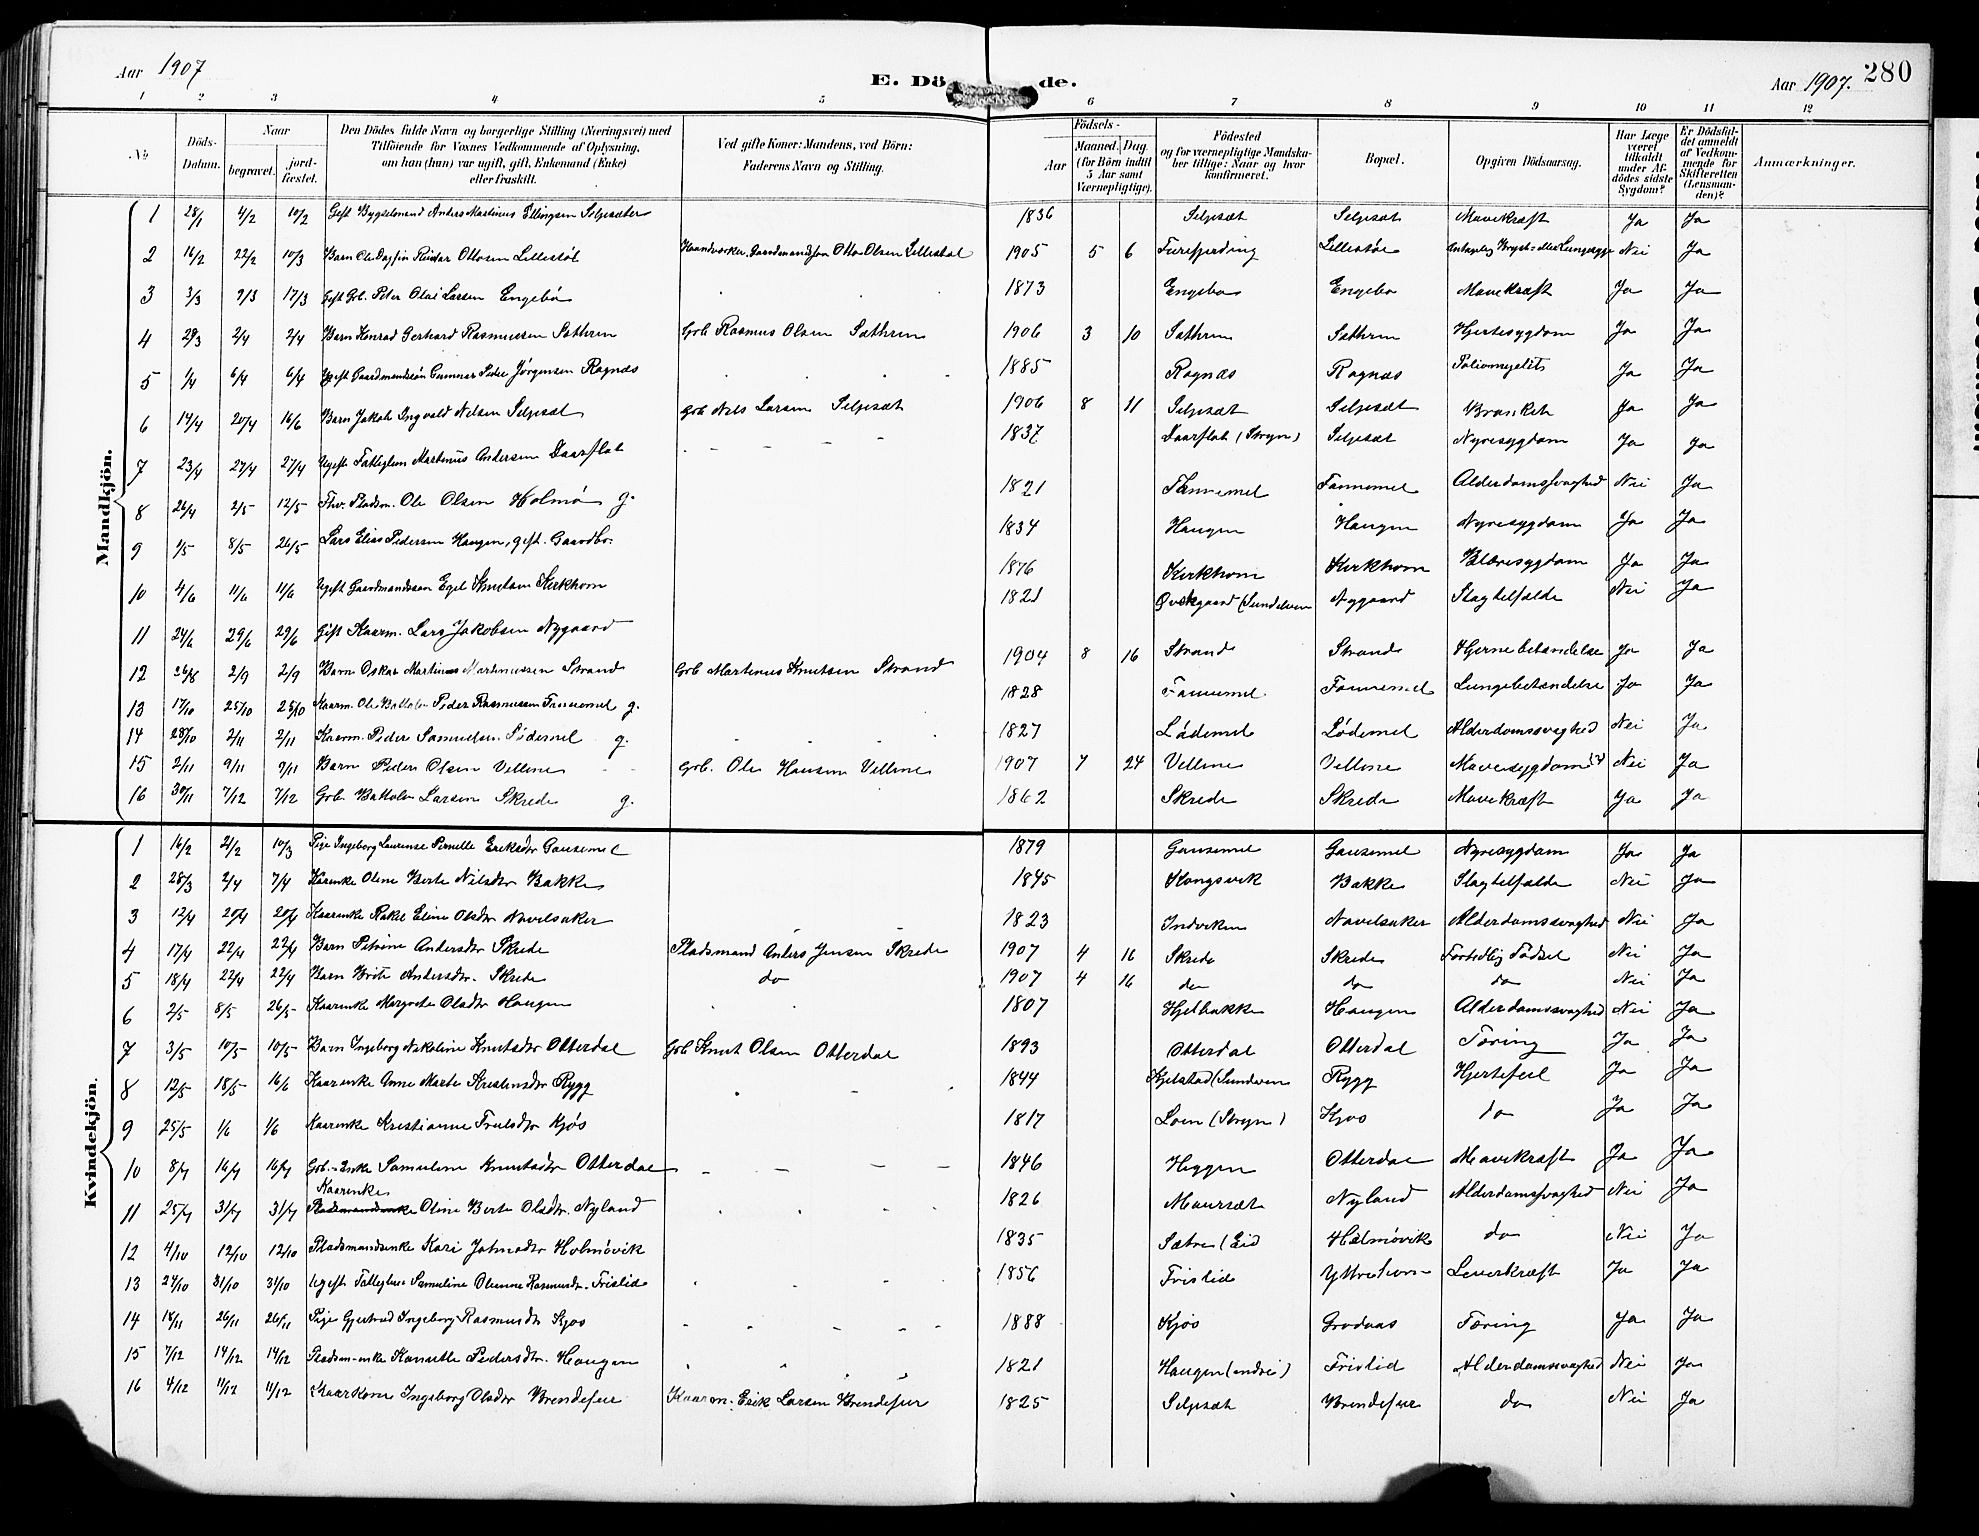 Aar 1907
E. Dö de.
Aar 1907.
280
1 2 3 4 5 6 7 8 9 10 11 12
№
Döds-Datum.
Naar
begravet.
jord-fæstet.
Den Dödes fulde Navn og borgerlige Stilling (Næringsvei) med Tilföiende for Voxnes Vedkommende af Oplysning, om han (hun) var ugift, gift, Enkemand (Enke) eller fraskilt.
Ved gifte Koner: Mandens, ved Börn: Faderens Navn og Stilling.
Födsels-
Aar
Maaned. Dag.
(for Börn indtil 5 Aar samt Værnepligtige).
Födested og for værnepligtige Mandskaber tillige: Naar og hvor konfirmeret.
Bopæl.
Opgiven Dödsaarsag.
Har Læge været tilkaldt under Afdödes sidste Sygdom?
Er Dödsfaldet anmeldt af Vedkommende for Skifteretten (Lensmanden)?
Anmærkninger.
Mandkjön.
1 28/1 4/2 10/2 Gift Bygselmand Anders Martinus Ellingsen Seljesæter 1836 Seljesæt Seljesæt Mavekræft Ja Ja
2 16/2 22/2 10/3 Barn Ole Dagfin Ottosen Lillestøl Haandverker, Gaardmandssøn Otto Olsen Lillestøl 1905 5 6 Lillestøl Nei Ja
3 3/3 9/3 17/3 Gift Gbr. Peter Olai Larsen Engebø 1873 Engebø Engebø Mavekræft Ja Ja
4 28/3 2/4 2/4 Barn Konrad Gerhard Rasmussen Sæthren Gbr Rasmus Olsen Sæthren 1906 3 10 Sæthren Sæthren Hjertesygdom Ja Ja
5 1/4 6/4 6/4 Ugift Gaardmandssøn Gunnar Peder Jørgensen Ragnæs 1885 Ragnæs Ragnæs Poliomyelit Ja Ja
6 14/4 20/4 16/6 Barn Jakob Ingvald Nilsen Seljesæt Gbr Nils Larsen Seljesæt 1906 8 11 Seljesæt Seljesæt Ja Ja
7 23/4 27/4 27/4 Ugift Fattiglem Martinus Andersen Daarflot 1837 Daarflot (Stryn) Seljesæt Nyresygdom Ja Ja
8 26/4 2/5 12/5 Fhv. Pladsm. Ole Olsen Holmø g. 1821 Fannemel Fannemel Alderdomssvaghed Nei Ja
9 1/5 8/5 26/5 Lars Elias Pedersen Haugen, gift. Gaardbr. 1834 Haugen Haugen Nyresygdom Ja Ja
10 4/6 11/6 11/6 Ugift Gaardmandssøn Egil Knutsen Kirkhorn 1876 Kirkhorn Kirkhorn Blæresygdom Ja Ja
11 24/6 29/6 29/6 Gift Kaarm. Lars Jakobsen Nygaard 1821 Nygaard Slagtilfælde Nei Ja
12 26/8 2/9 2/9 Barn Oskar Martinus Martinussen Strand Gbr Martinus Knutsen Strand 1904 8 16 Strand Strand Hjernebetændelse Ja Ja
13 17/10 25/10 25/10 Kaarm. Ole Peder Rasmussen Fannemel g. 1828 Fannemel Fannemel Lungebetændelse Ja Ja
14 28/10 2/11 2/11 Kaarm. Peder Samuelsen Lødemel g. 1827 Lødemel Lødemel Alderdomssvaghed Nei Ja
15 2/11 9/11 9/11 Barn Peder Olsen Vellene Gbr. Ole Hansen Vellene 1907 7 24 Vellene Vellene Mavesygdom Nei Ja
16 30/11 7/12 7/12 Gbr. Batolv Larsen Skrede g. 1862 Skrede Skrede Mavekræft Ja Ja
Kvindekjön.
1 16/2 2/2 10/3 Pige Ingeborg Laurense Pernille Eriksdtr Gausemel 1879 Gausemel Gausemel Nyresygdom Ja Ja
2 28/3 2/4 7/4 Kaarenke Oline Berte Nilsdtr Bakke 1845 Kongsvik Bakke Slagtilfælde Nei Ja
3 12/4 20/4 20/4 Kaarenke Rakel Eline Olsdtr Navelsaker 1823 Indviken Navelsaker Alderdomssvaghed Nei Ja
4 17/4 22/4 22/4 Barn Petrine Andersdtr Skrede Pladsmand Anders Jensen Skrede 1907 4 16 Skrede Skrede Fortidlig Fødsel Nei Ja
5 18/4 22/4 22/4 Barn Brite Andersdtr. Skrede do 1907 4 16 do do do Nei Ja
6 2/5 8/5 26/5 Kaarenke Margrete Olsdtr Haugen 1807 Hjelbakke Haugen Alderdomssvaghed Nei Ja
7 3/5 10/5 10/5 Barn Ingeborg Nikoline Knutsdtr Otterdal Gbr Knut Olsen Otterdal 1893 Otterdal Otterdal Tæring Ja Ja
8 12/5 18/5 16/6 Kaarenke Anne Marte Kristensdtr Rygg 1844 Rygg Hjertefeil Ja Ja
9 25/5 1/6 1/6 Kaarenke Kristianne Truelsdtr Kjøs 1817 Loen (Stryn) Kjøs do Ja Ja
10 8/7 14/7 14/7 Gbr.-Enke Samueline Knutsdtr Otterdal 1846 Heggen Otterdal Mavekræft Ja Ja
Kaarenke
11 25/7 31/7 31/7 Pladsmandsenke Oline Berte Olsdtr. Nyland 1826 Maursæt Nyland Alderdomssvaghed Nei Ja
12 4/10 12/10 12/10 Pladsmandsenke Kari Johnsdtr Holmøvik 1835 Sætre (Eid Holmøvik do Nei Ja
13 24/10 31/10 31/10 Ugift Samueline Olianne Rasmusdtr. Frislid 1856 Frislid Leverkræft Ja Ja
14 18/11 26/11 26/11 Pige Gjertrud Ingeborg Rasmusdtr Kjøs 1888 Kjøs Grodaas Tæring Ja Ja
15 7/12 14/12 14/12 Pladsm.-enke Kanutte Pedersdtr. Haugen 1821 Haugen (indre) Frislid Alderdomssvaghed Nei Ja
16 4/12 11/12 11/12 Kaarkone Ingeborg Olsdtr Brendefur Kaarm. Erik Larsen Brendefur 1825 Seljesæt Brendefur do Nei Ja